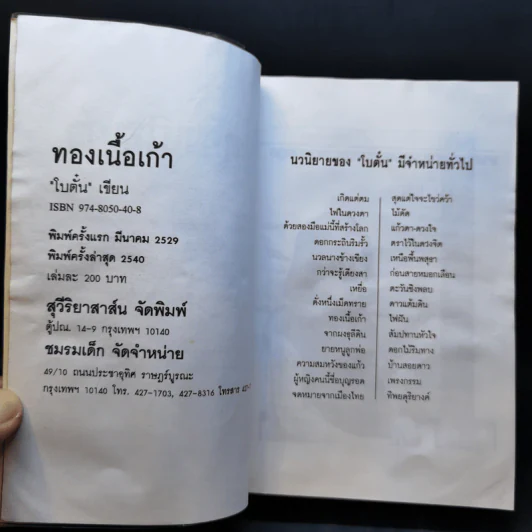 ทองเนื้อเก้า
"ใบตั๋น" เขียน
ISBN 974-8050-40-8
พิมพ์ครั้งแรก มีนาคม 2529
พิมพ์ครั้งล่าสุด 2540
เล่มละ 200 บาท
สุวีริยาสาส์น จัดพิมพ์
ตู้ปณ. 14-9 กรุงเทพฯ 10140
ชมรมเด็ก จัดจำหน่าย
49/10 ถนนประชาอุทิศ ราษฎร์บูรณะ
กรุงเทพฯ 10140 โทร. 427-1703, 427-8316 โทรสาร
นวนิยายของ "ใบตั๋น" มีจำหน่ายทั่วไป
เกิดแต่ตม
ไฟในดวงตา
ด้วยสองมือแม่นี้ที่สร้างโลก
ดอกกระถินริมรั้ว
นวลนางข้างเขียง
กว่าจะรู้เดียงสา
เหยื่อ
ดั่งหนึ่งเม็ดทราย
ทองเนื้อเก้า
จากฝงธุลีดิน
ยายหนูลูกพ่อ
ความสมหวังของแก้ว
ผู้หญิงคนนี้ชื่อบุญรอด
จดหมายจากเมืองไทย
สุดแต่ใจจะไขว่คว้า
ไม้ดัด
แก้วตา-ดวงใจ
ตราไว้ในดวงจิต
เหนือพื้นพสุธา
ก่อนสายหมอกเลือน
ตะวันชิงพลบ
ดาวแต้มดิน
ไฟฝัน
สัมปทานหัวใจ
ดอกไม้ริมทาง
บ้านสอยดาว
เพรงกรรม
ทิพยดุริยางค์